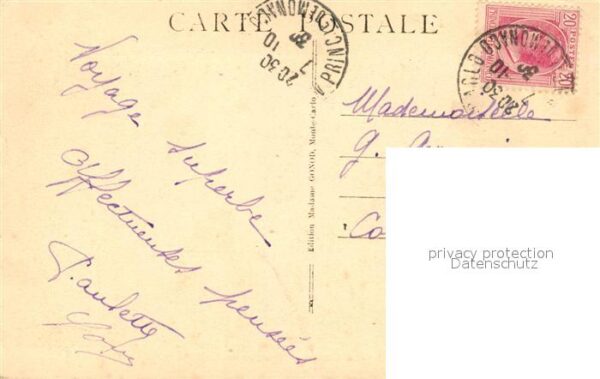 CARTE POSTALE
Voyage superbe
Affectueuses pensées
Paulette
Edition Madame GONOD, Monte-Carlo
PRINCTÉ DE MONACO
20 30
10
7
20 POSTES 20
20 30
10
7
Mademoiselle
G.
privacy protection
Datenschutz